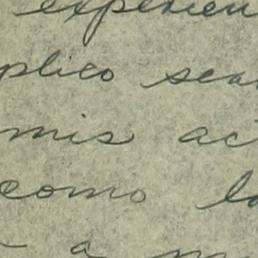 experien
plico sea
mis ac
como lo
a